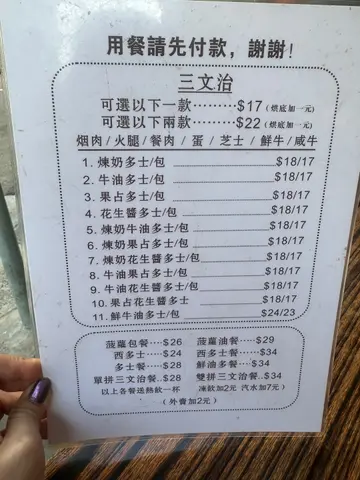 用餐請先付款，謝謝!
三文治
可選以下一款………$17 (烘底加一元)
可選以下兩款………$22 (烘底加一元)
烟肉/火腿/餐肉/蛋/芝士/鮮牛/咸牛
1. 煉奶多士/包 $18/17
2. 牛油多士/包 $18/17
3. 果占多士/包 $18/17
4. 花生醬多士/包 $18/17
5. 煉奶牛油多士/包 $18/17
6. 煉奶果占多士/包 $18/17
7. 煉奶花生醬多士/包 $18/17
8. 牛油果占多士/包 $18/17
9. 牛油花生醬多士/包 $18/17
10. 果占花生醬多士 $18/17
11. 鮮牛油多士/包 $24/23
菠蘿包餐…$26 菠蘿油餐…$29
西多士…$24 西多士餐…$34
多士餐…$28 鮮油多餐…$34
單拼三文治餐..$28 雙拼三文治餐..$34
以上各餐送熱飲一杯 凍飲加2元 汽水加7元)
(外賣加2元)